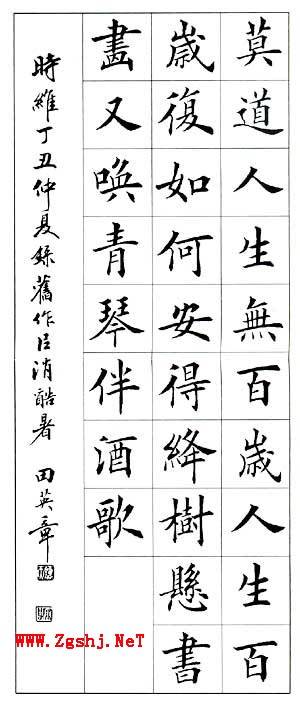 莫道人生無百歲人生百
歲復如何安得絳樹懸書
畫又喚青琴伴酒歌
時維丁丑仲夏錄舊作㠯消酷暑 田英章
www.Zgshj.NeT